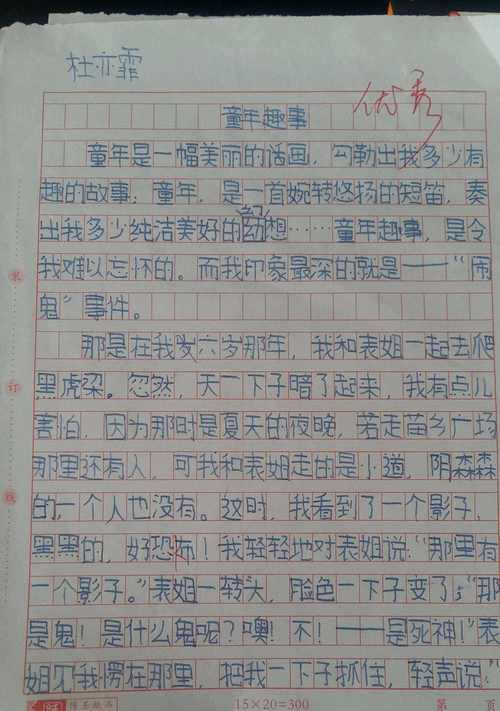 杜亦霏
优秀
童年趣事
童年是一幅美丽的话画，勾勒出我多少有
趣的故事；童年，是一首婉转悠扬的短笛，奏
出我多少纯洁美好的梦想……童年趣事，是令
我难以忘怀的。而我印象最深的就是——“闹
鬼”事件。
那是在我岁六岁那年，我和表姐一起去爬
黑虎梁。忽然，天一下子暗了起来，我有点儿
害怕，因为那时是夏天的夜晚，若走苗乡广场
那里还有人，可我和表姐走的是小道，阴森森
的，一个人也没有。这时，我看到了一个影子，
黑黑的，好恐怖！我轻轻地对表姐说：“那里有
一个影子。”表姐一转头，脸色一下子变了：“那
是鬼！是什么鬼呢？噢！不！——是死神！”表
姐见我愣在那里，把我一下子抓住，轻声说：“
装
订
线
15×20=300
第 页